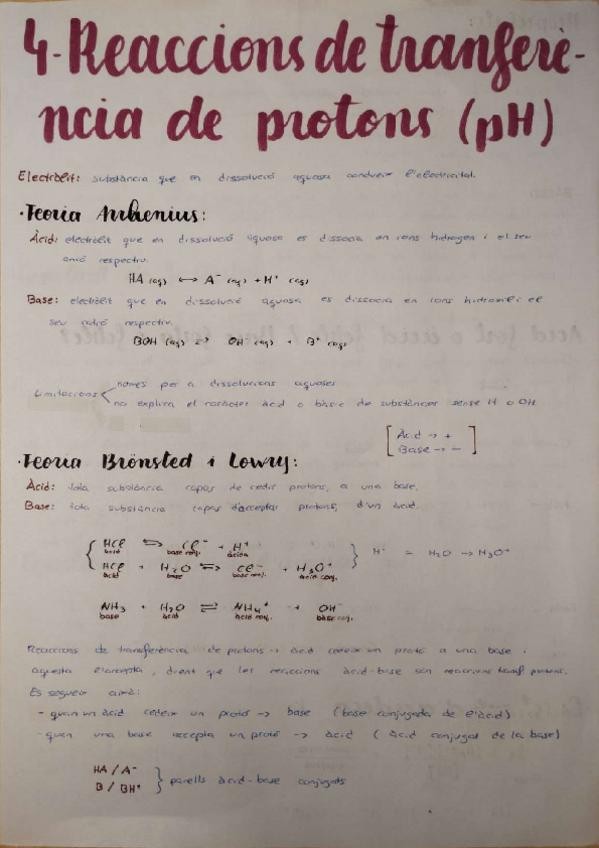 4-Reaccions de tranferè-
ncia de protons (pH)
Electròlit: substància que en dissolució aquosa condueix l'electricitat.
·Teoria Arrhenius:
Àcid: electròlit que en dissolució aquosa es dissocia en ions hidrogen i el seu
anió respectiu.
HA (aq) ⟷ A⁻ (aq) + H⁺ (aq)
Base: electròlit que en dissolució aquosa es dissocia en ions hidroxil i el
seu catió respectiu.
BOH (aq) ⟷ OH⁻ (aq) + B⁺ (aq)
Limitacions
només per a dissolucions aquoses
no explica el caràcter àcid o bàsic de substàncies sense H o OH
[ Àcid → +
Base → - ]
·Teoria Brönsted i Lowry:
Àcid: tota substància capaç de cedir protons, a una base.
Base: tota substància capaç d'acceptar protons, d'un àcid.
HCl ⇌ Cl⁻ + H⁺
àcid base conj.
HCl + H₂O ⇌ Cl⁻ + H₃O⁺
àcid base base conj. àcid conj.
H⁺ = H₂O → H₃O⁺
NH₃ + H₂O ⇌ NH₄⁺ + OH⁻
base àcid àcid conj. base conj.
Reaccions de transferència de protons → àcid cedeix un protó a una base i
aquesta l'accepta, dient que les reaccions àcid-base són reaccions transf. protons.
Es segueix així:
- quan un àcid cedeix un protó → base (base conjugada de l'àcid)
- quan una base accepta un protó → àcid (àcid conjugat de la base)
HA / A⁻
B / BH⁺
} parells àcid-base conjugats